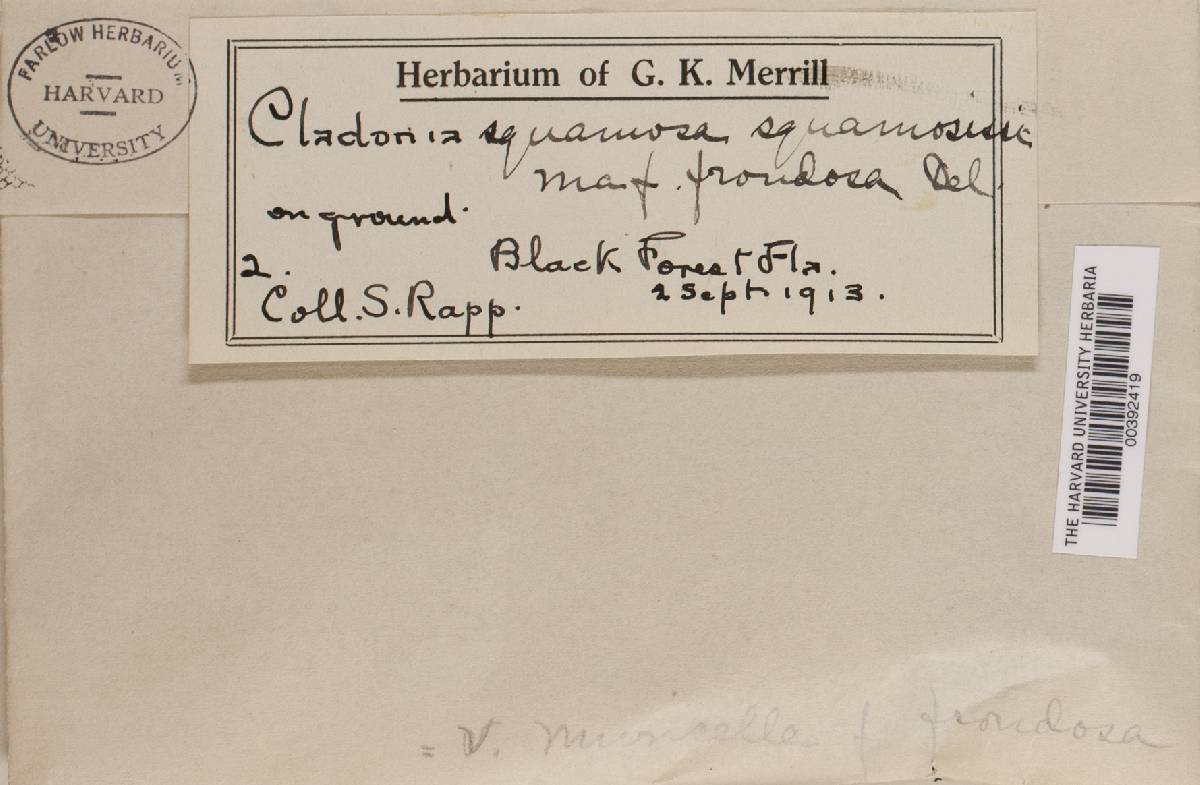 FARLOW HERBARIUM
HARVARD
UNIVERSITY
Herbarium of G. K. Merrill
Cladonia squamosa squamosissi
ma f. frondosa Del.
on ground.
2.
Black Forest Fla.
Coll. S. Rapp.
2 Sept 1913.
THE HARVARD UNIVERSITY HERBARIA
00392419
= v. muricella f frondosa